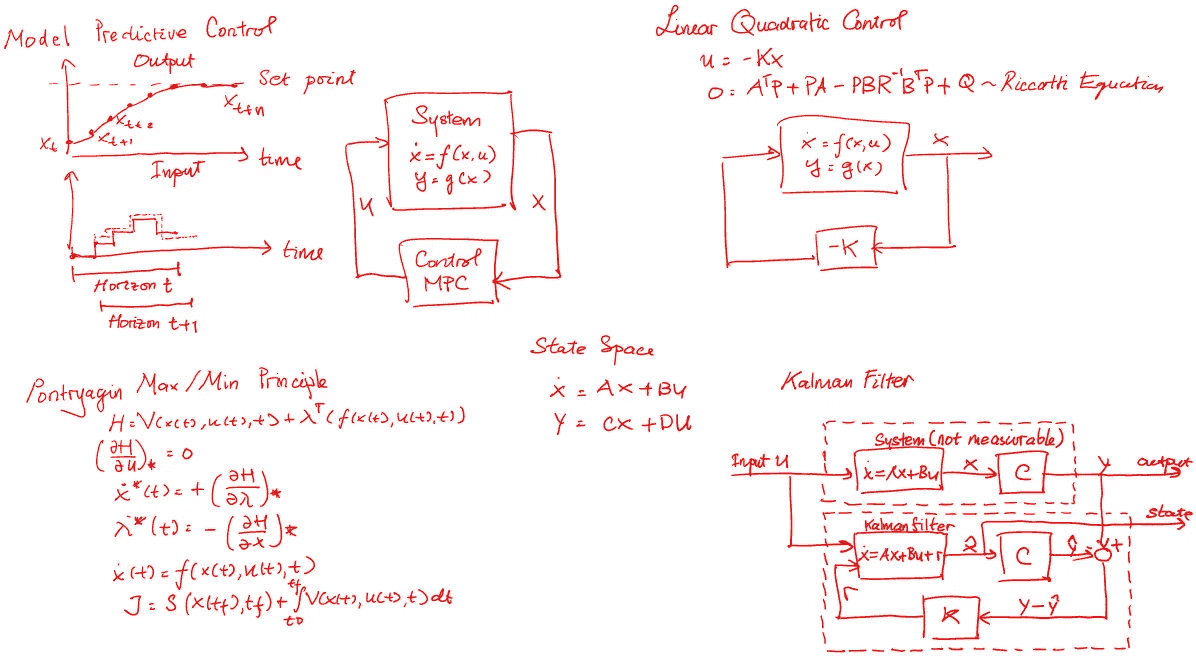 Model Predictive Control
Output
Set point
x_{t+n}
x_{t+2}
x_{t+1}
x_t
time
Input
time
Horizon t
Horizon t+1
System
ẋ = f(x,u)
y = g(x)
u
x
Control
MPC
Linear Quadratic Control
u = -Kx
0 = AᵀP + PA - PBR⁻¹BᵀP + Q ~ Riccatti Equation
ẋ = f(x,u)
y = g(x)
x
-K
Pontryagin Max/Min Principle
H = V(x(t), u(t), t) + λᵀ(f(x(t), u(t), t))
(∂H/∂u)_* = 0
ẋ*(t) = +(∂H/∂λ)_*
λ̇*(t) = -(∂H/∂x)_*
ẋ(t) = f(x(t), u(t), t)
J = S(x(tf), tf) + ∫_{t0}^{tf} V(x(t), u(t), t) dt
State Space
ẋ = Ax + Bu
y = Cx + Du
Kalman Filter
System (not measurable)
Input u
ẋ = Ax + Bu
x
C
y
output
state
Kalman filter
ẋ = Ax + Bu + r
x̂
C
ŷ
-
+
r
K
y - ŷ